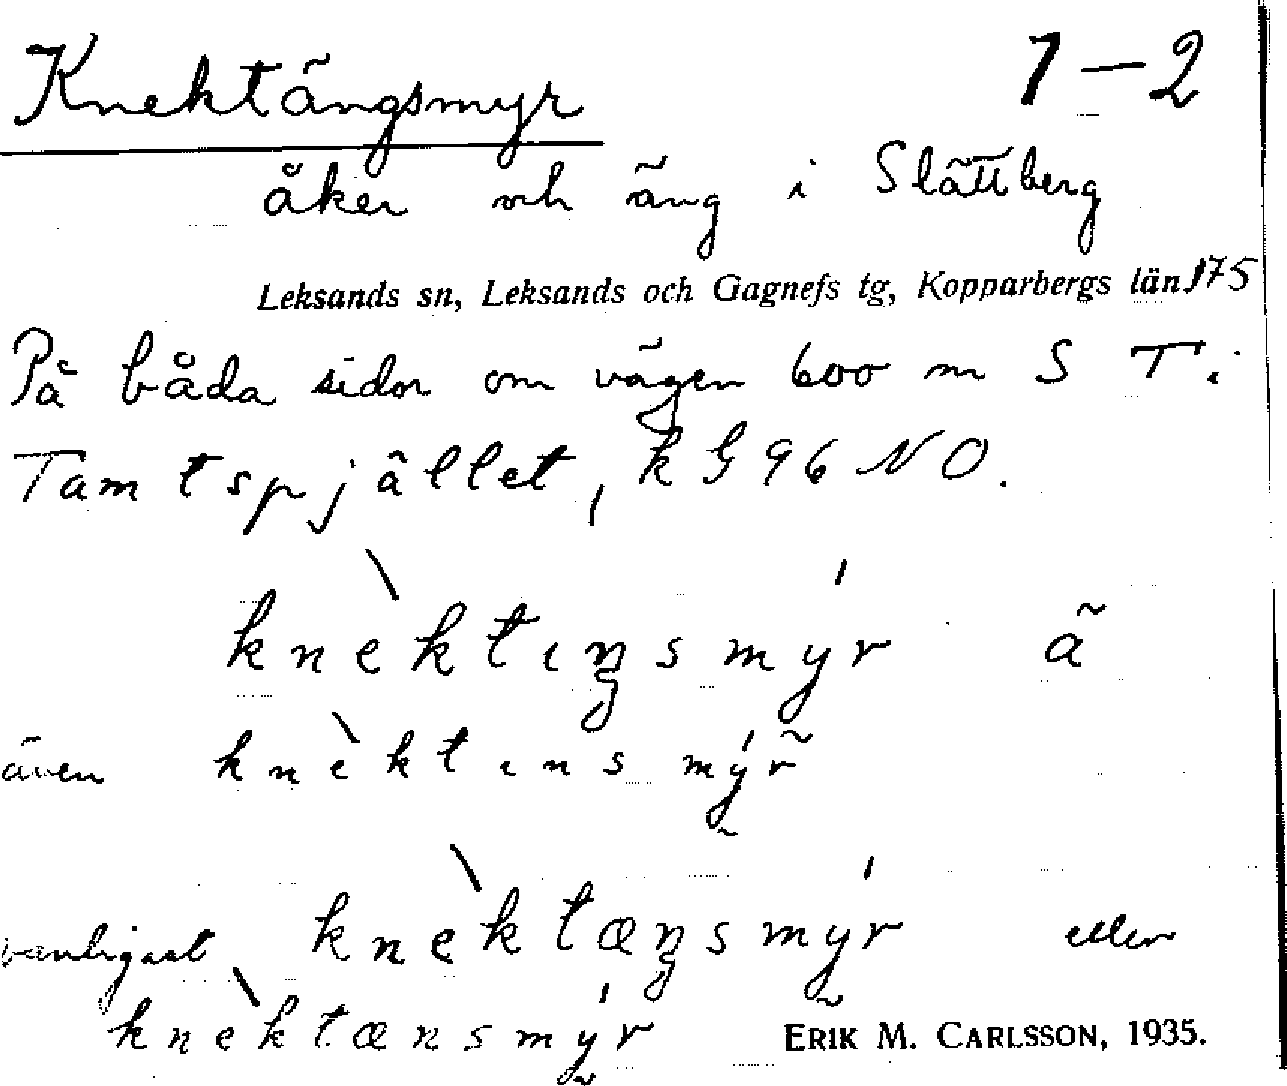 Knektängsmyr 1-2
åker och äng i Slättberg
Leksands sn, Leksands och Gagnefs tg, Kopparbergs län 175
På båda sidor om vägen 600 m S T.
Tamtspjället, k G 96 NO.
knèktıŋsmýr ã
även knèktınsmýr
vanligast knèktæŋsmýr eller
knèktænsmýr ERIK M. CARLSSON, 1935.